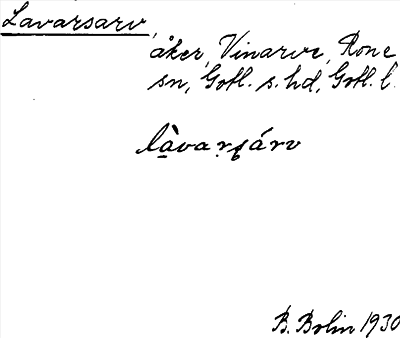 Lavarsarv,
åker, Vinarve, Rone
sn, Gotl. s. hd, Gotl. l.
B. Bolin 1930